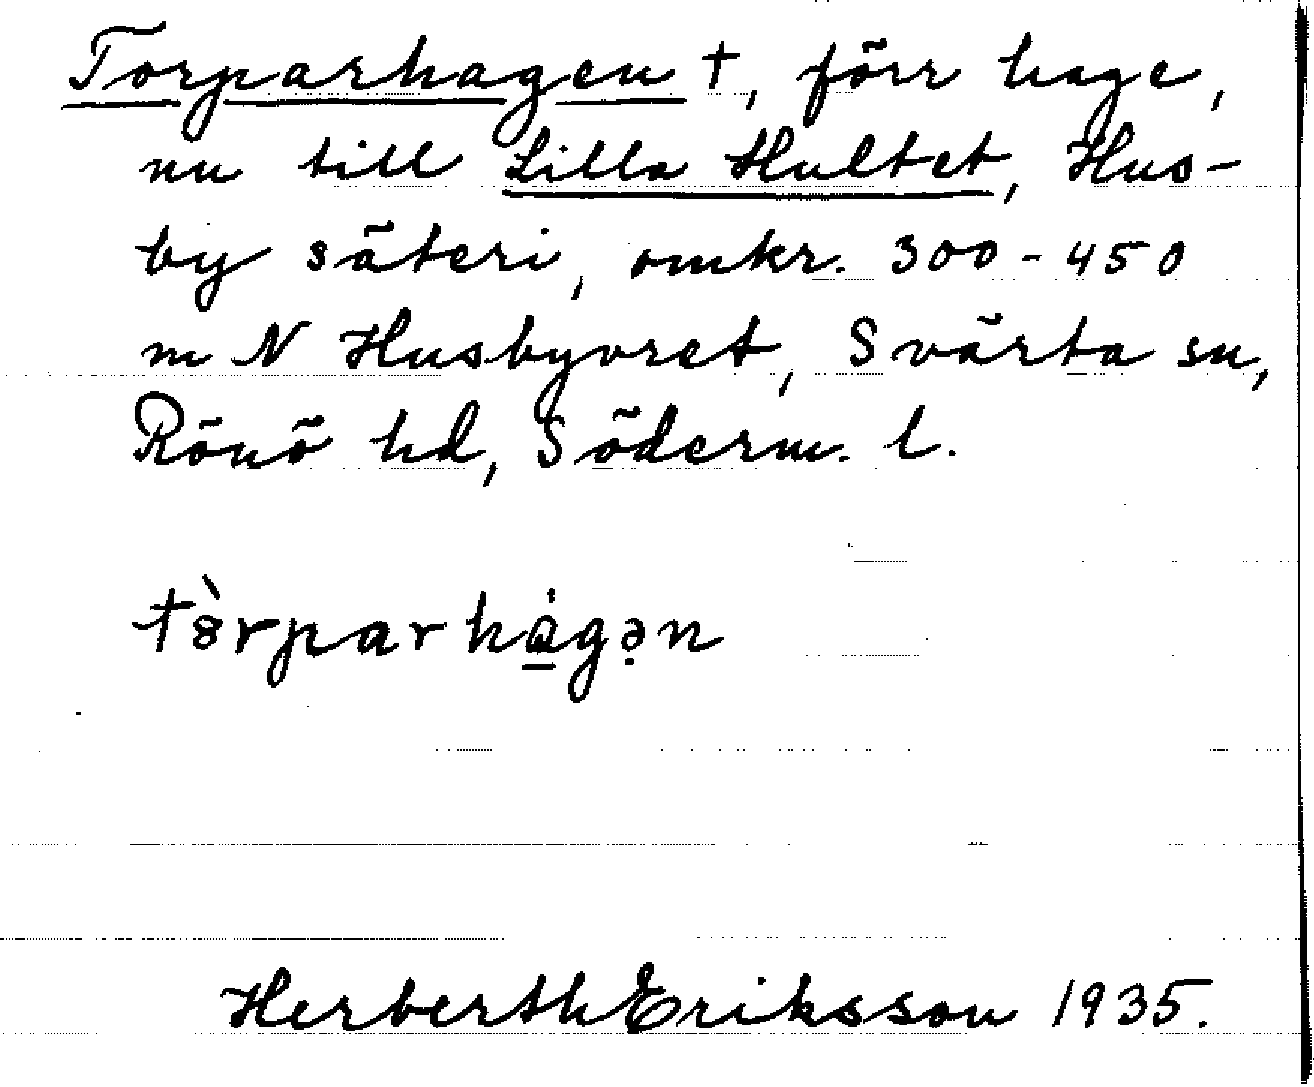 Torparhagen †, förr hage,
nu till Lilla Hultet, Hus-
by säteri, omkr. 300-450
m N Husbyvret, Svärta sn,
Rönö hd, Söderm. l.
tòrparhágən
Herberth Eriksson 1935.